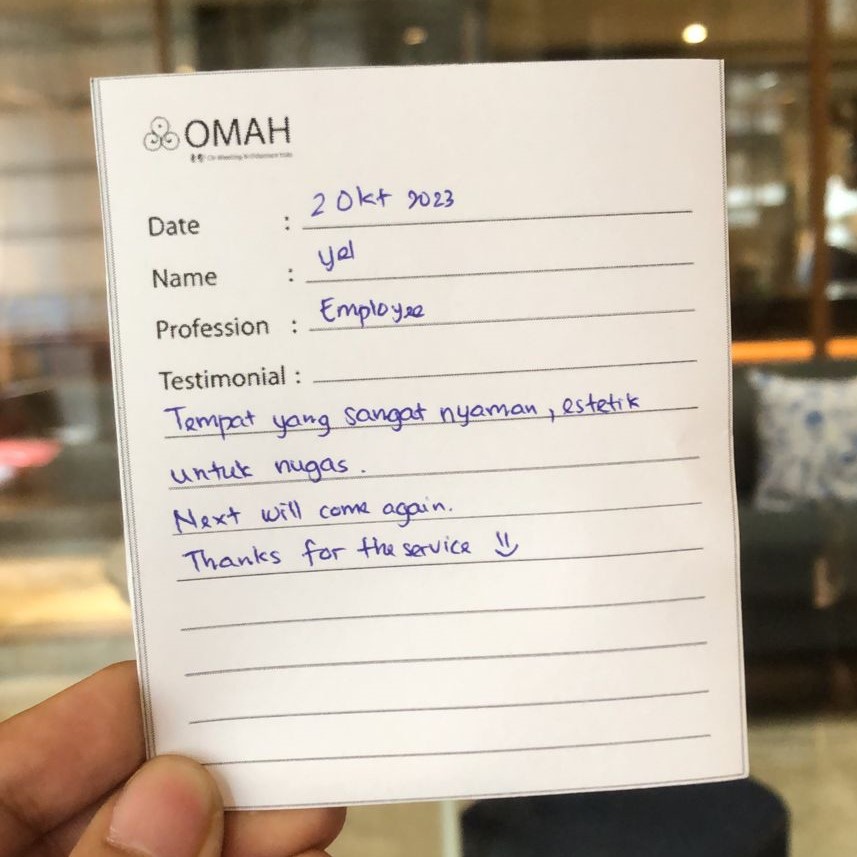 OMAH
Date : 2 Okt 2023
Name : yel
Profession : Employee
Testimonial :
Tempat yang sangat nyaman, estetik
untuk nugas.
Next will come again.
Thanks for the service